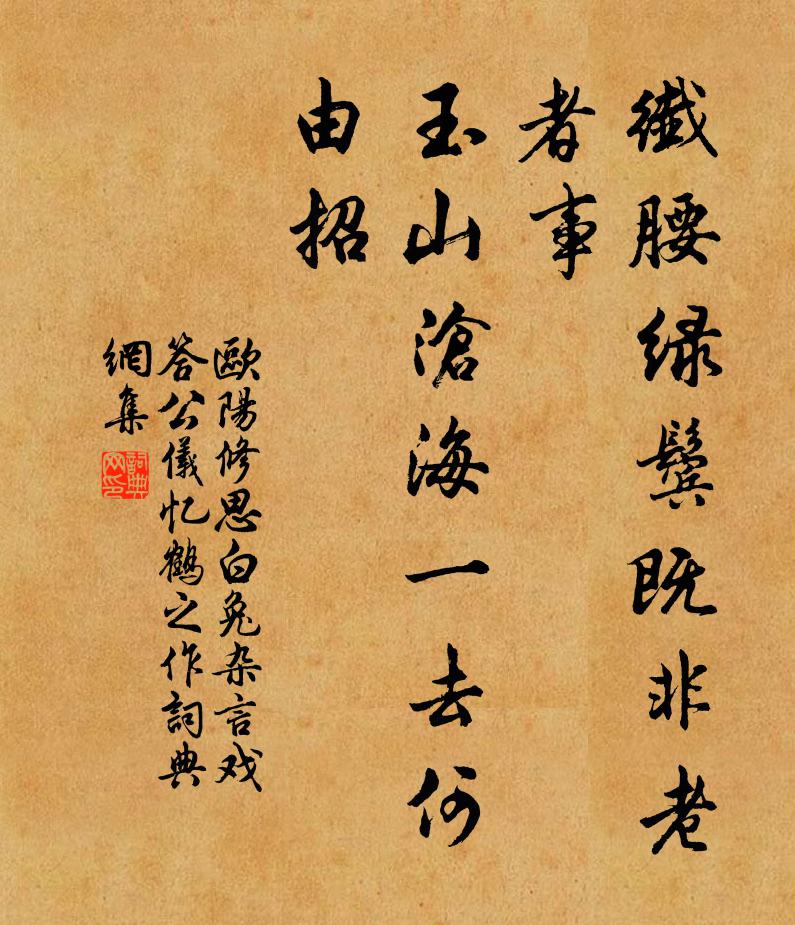 纎腰緑鬓既非老
者事
玉山滄海一去何
由招
歐陽修思白兔杂言戏
答公儀忆鶴之作詞典
網集
詞典網印